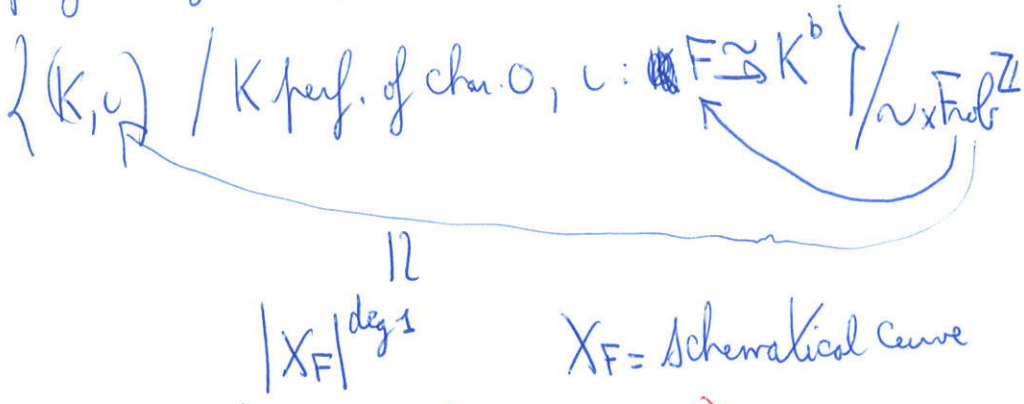 {(K, ι) / K perf. of char. 0, ι : F ⥲ K^b} / ~ × Frob^ℤ
|X_F|^{deg 1} X_F = Schematical curve